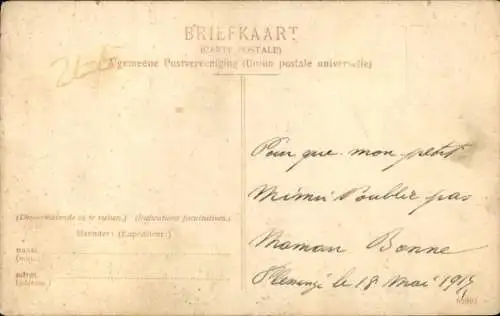 BRIEFKAART
(CARTE POSTALE)
Algemeene Postvereeniging (Union postale universelle)
Pour que mon petit
Mimi n'oublie pas
(Onverplichtende in te vullen.) (Indications facultatives.)
Afzender: (Expéditeur:)
Maman Bonne
naam:
(nom)
le 18 Mai 1917
adres:
(adresse)